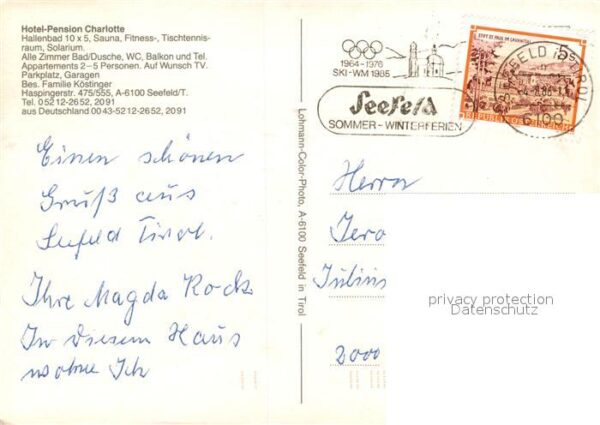 Hotel-Pension Charlotte
Hallenbad 10 x 5, Sauna, Fitness-, Tischtennis-
raum, Solarium.
Alle Zimmer Bad/Dusche, WC, Balkon und Tel.
Appartements 2–5 Personen. Auf Wunsch TV.
Parkplatz, Garagen
Bes. Familie Köstinger
Haspingerstr. 475/555, A-6100 Seefeld/T.
Tel. 05212-2652, 2091
aus Deutschland 0043-5212-2652, 2091
Einen schönen
Gruß aus
Seefeld Tirol.
Ihre Magda Rock
In diesem Haus
wohne Ich
Lohmann-Color-Photo, A-6100 Seefeld in Tirol
1964-1976
SKI-WM 1985
Seefeld
SOMMER-WINTERFERIEN
STIFT ST. PAUL IM LAVANTTAL
5s
REPUBLIK ÖSTERREICH
SEEFELD i. TIROL
6100
Herrn
Jero
Julius
2000
privacy protection
Datenschutz